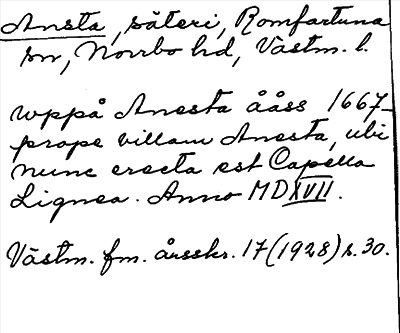 Ansta, säteri, Romfartuna
sn, Norrbo hd, Västm. l.
uppå Anesta ååss 1667
prope villam Anesta, ubi
nunc erecta est Capella
Lignea. Anno MDXVII.
Västm. fm. årsskr. 17 (1928) s. 30.